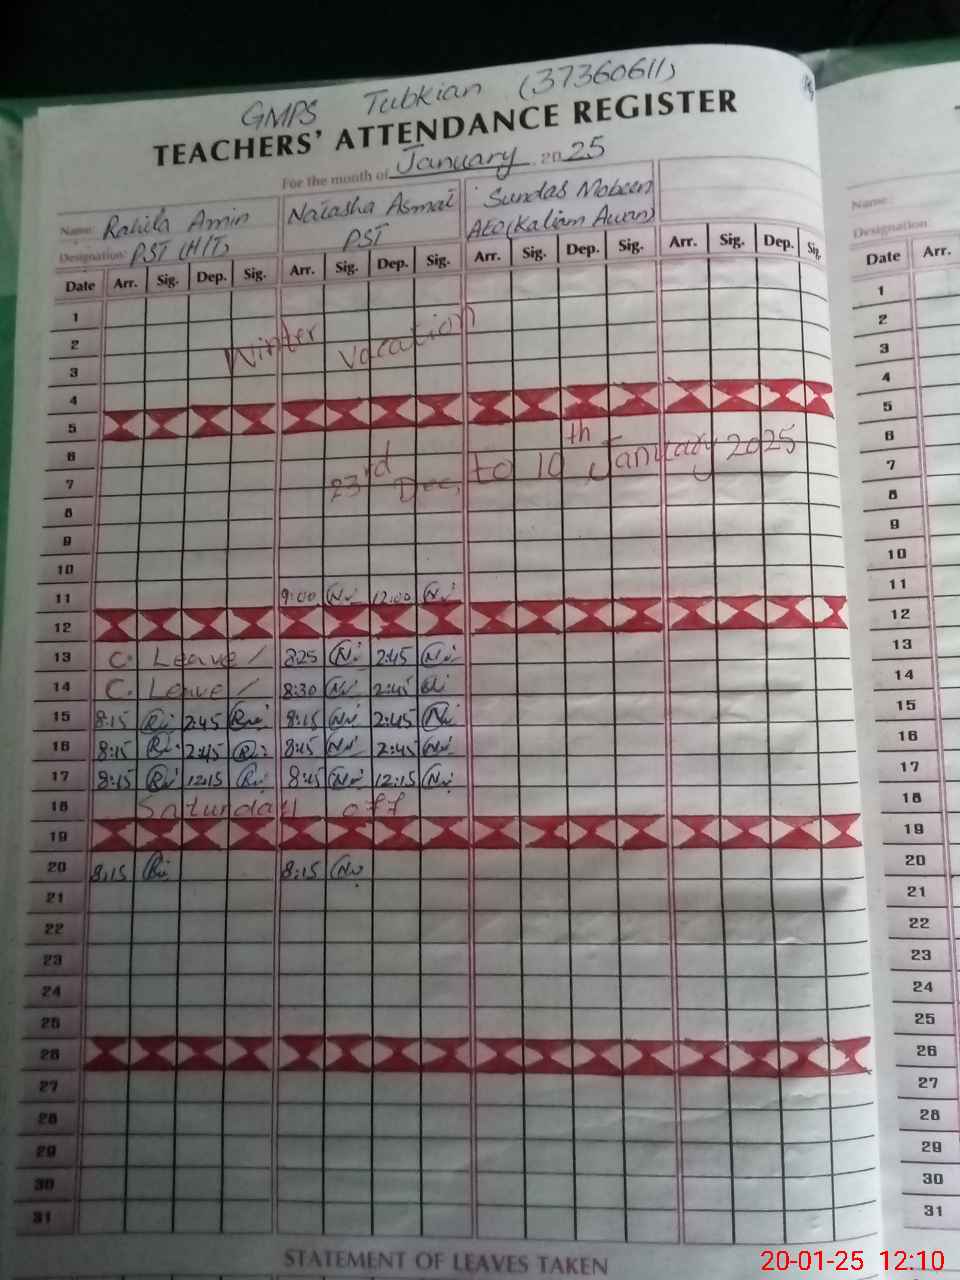 GMPS Tubkian (37360611)
TEACHERS' ATTENDANCE REGISTER
For the month of January 2025
Name: Rahila Amin Natasha Asmat Sundas Mobeen
Designation: PST (H/T) PST AEO (Kalim Awan)
Date Arr. Sig. Dep. Sig. Arr. Sig. Dep. Sig. Arr. Sig. Dep. Sig. Arr. Sig. Dep. Sig.
1
2 Winter vacation
3
4
5
6
7 23rd Dec, to 10th January 2025
8
9
10
11 9:00 12:00
12
13 C. Leave / 8:25 2:45
14 C. Leave / 8:30 2:45
15 8:15 2:45 8:15 2:45
16 8:15 2:45 8:15 2:45
17 8:15 12:15 8:15 12:15
18 Saturday off
19
20 8:15 8:15
21
22
23
24
25
26
27
28
29
30
31
STATEMENT OF LEAVES TAKEN
Name:
Designation:
Date Arr.
1
2
3
4
5
6
7
8
9
10
11
12
13
14
15
16
17
18
19
20
21
22
23
24
25
26
27
28
29
30
31
20-01-25 12:10